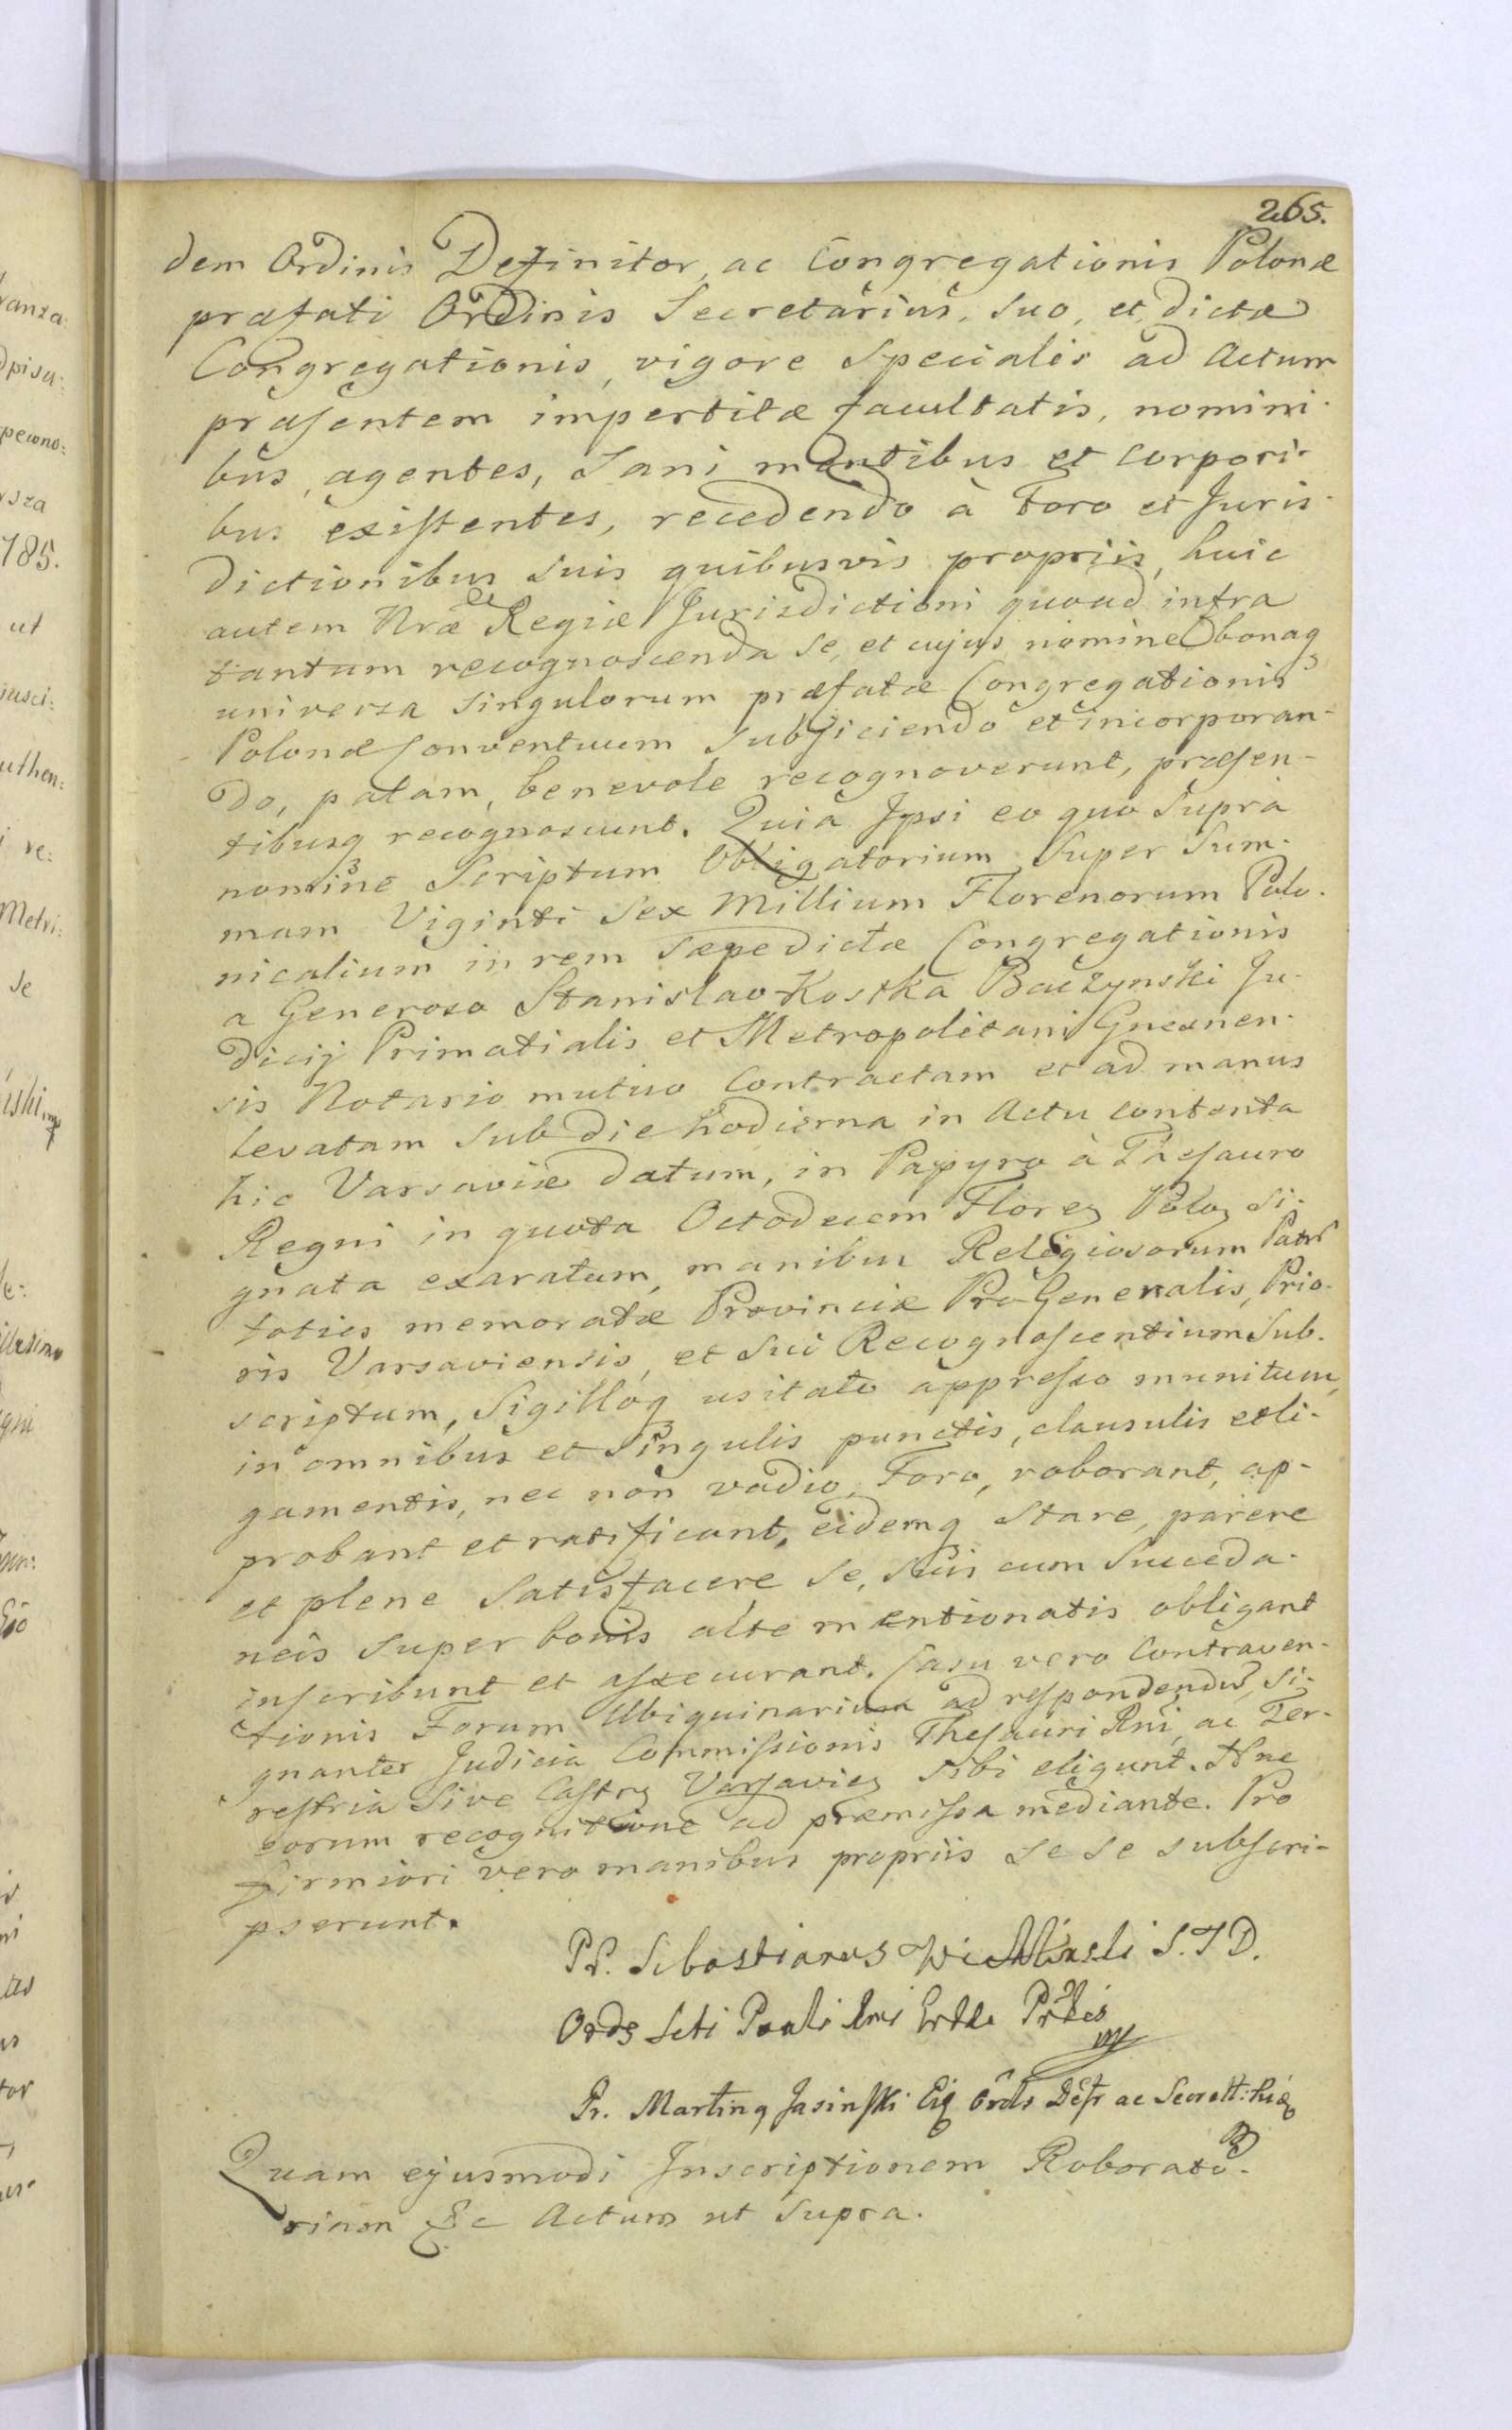 265.
dem Ordinis Definitor, ac Congregationis Polonæ
præfati Ordinis Secretarius, suo, et dictæ
Congregationis, vigore Specialis ad Actum
præsentem impertitæ facultatis, nomini-
bus agentes, Sani mentibus et corpori-
bus existentes, recedendo à Foro et Juris-
dictionibus suis quibusvis propriis, huic
autem Nræ Regiæ Jurisdictioni quoad infra
tantum recognoscenda se, et cujus nomine bonaq
universa singulorum præfatæ Congregationis
Polonæ Conventuum subjiciendo et incorporan-
do, palam, benevole recognoverunt, præsen-
tibusq recognoscunt. Quia Ipsi eo quo supra
nomine Scriptum Obligatorium Super Sum-
mam Viginti Sex Millium Florenorum Polo-
nicalium in rem sæpedictæ Congregationis
a Generoso Stanislao Kostka Baczynski Ju-
dicij Primatialis et Metropolitani Gnesnen-
sis Notario mutuo Contractam et ad manus
levatam sub die hodierna in Actu contenta
hic Varsaviæ datum, in Papyro à Thesauro
Regni in quota Octodecem Flor Polo Si-
gnata exaratum, manibus Religiosorum Patr
toties memoratæ Provinciæ ProGeneralis, Prio-
ris Varsaviensis, et sui Recognoscentium Sub-
scriptum, Sigilloq usitato appresso munitum,
in omnibus et Singulis punctis, clausulis et li-
gamentis, nec non vadio, Foro, roborant, ap-
probant et ratificant, eidemq stare, parere
et plene Satisfacere se, suis cum Succeda-
neis super bonis alte mentionatis obligant
inscribunt et assecurant. Casu vero Contraven-
tionis Forum Ubiquinarium ad respondendu, Si-
gnanter Judicia Commissionis Thesauri Rni, ac Ter-
restria Sive Castr Varsavie sibi eligunt. Hac
eorum recognitione ad præmissa mediante. Pro
firmiori vero manibus propriis se se subscri-
pserunt.
Pr. Sebastianus S. T D.
Ords Scti Pauli Imi
Pr. Martinq Jasinski Eiq Ords Defr ac Secrett:
Quam ejusmodi Inscriptionem Roborato-
riam &c Actum ut Supra.